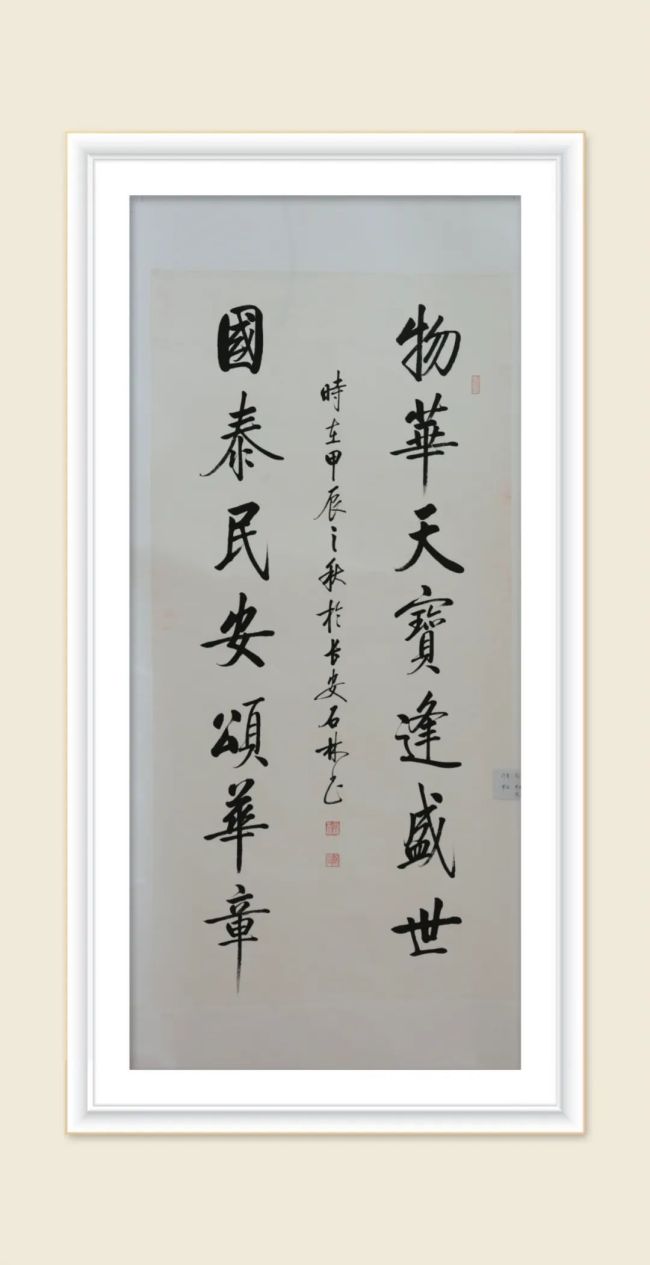 物華天寶逢盛世
國泰民安頌華章
時在甲辰之秋於长安石林